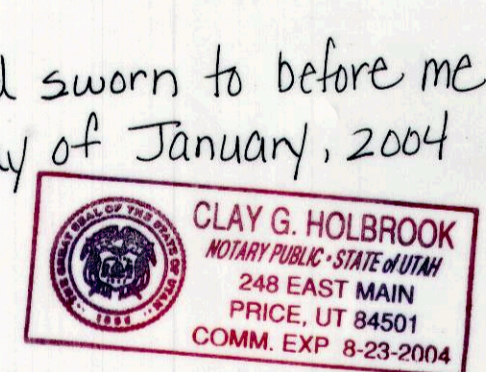 sworn to before me
of January, 2004
THE GREAT SEAL OF THE STATE OF UTAH
1896
CLAY G. HOLBROOK
NOTARY PUBLIC • STATE of UTAH
248 EAST MAIN
PRICE, UT 84501
COMM. EXP 8-23-2004